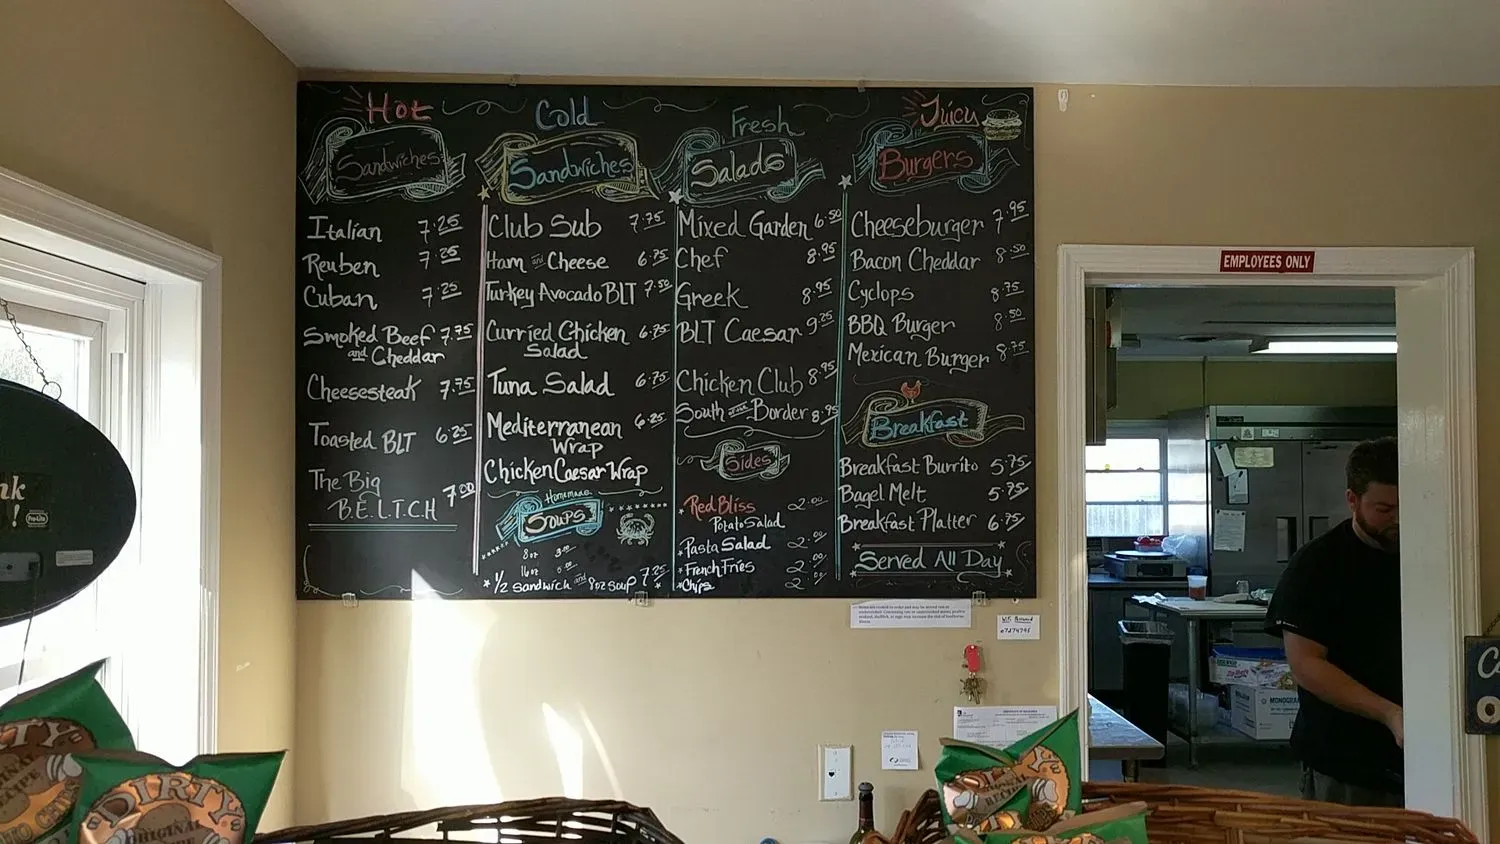 Hot
Sandwiches
Italian 7.25
Reuben 7.25
Cuban 7.25
Smoked Beef 7.75
and Cheddar
Cheesesteak 7.75
Toasted BLT 6.25
The Big
B.E.L.T.C.H 7.00
Cold
Sandwiches
Club Sub 7.75
Ham and Cheese 6.75
Turkey Avocado BLT 7.50
Curried Chicken 6.75
Salad
Tuna Salad 6.75
Mediterranean 6.25
Wrap
Chicken Caesar Wrap
Homemade
Soups
8oz 3.00
16oz 5.00
1/2 Sandwich and 8oz Soup 7.25
Fresh
Salads
Mixed Garden 6.50
Chef 8.95
Greek 8.95
BLT Caesar 9.25
Chicken Club 8.95
South of the Border 8.95
Sides
Red Bliss 2.00
Potato Salad
Pasta Salad 2.00
French Fries 2.00
Chips 2.00
Juicy
Burgers
Cheeseburger 7.95
Bacon Cheddar 8.50
Cyclops 8.75
BBQ Burger 8.50
Mexican Burger 8.75
Breakfast
Breakfast Burrito 5.75
Bagel Melt 5.75
Breakfast Platter 6.75
Served All Day
EMPLOYEES ONLY
nk
!
DIRTY
ORIGINAL
RECIPE
DIRTY
ORIGINAL
RECIPE